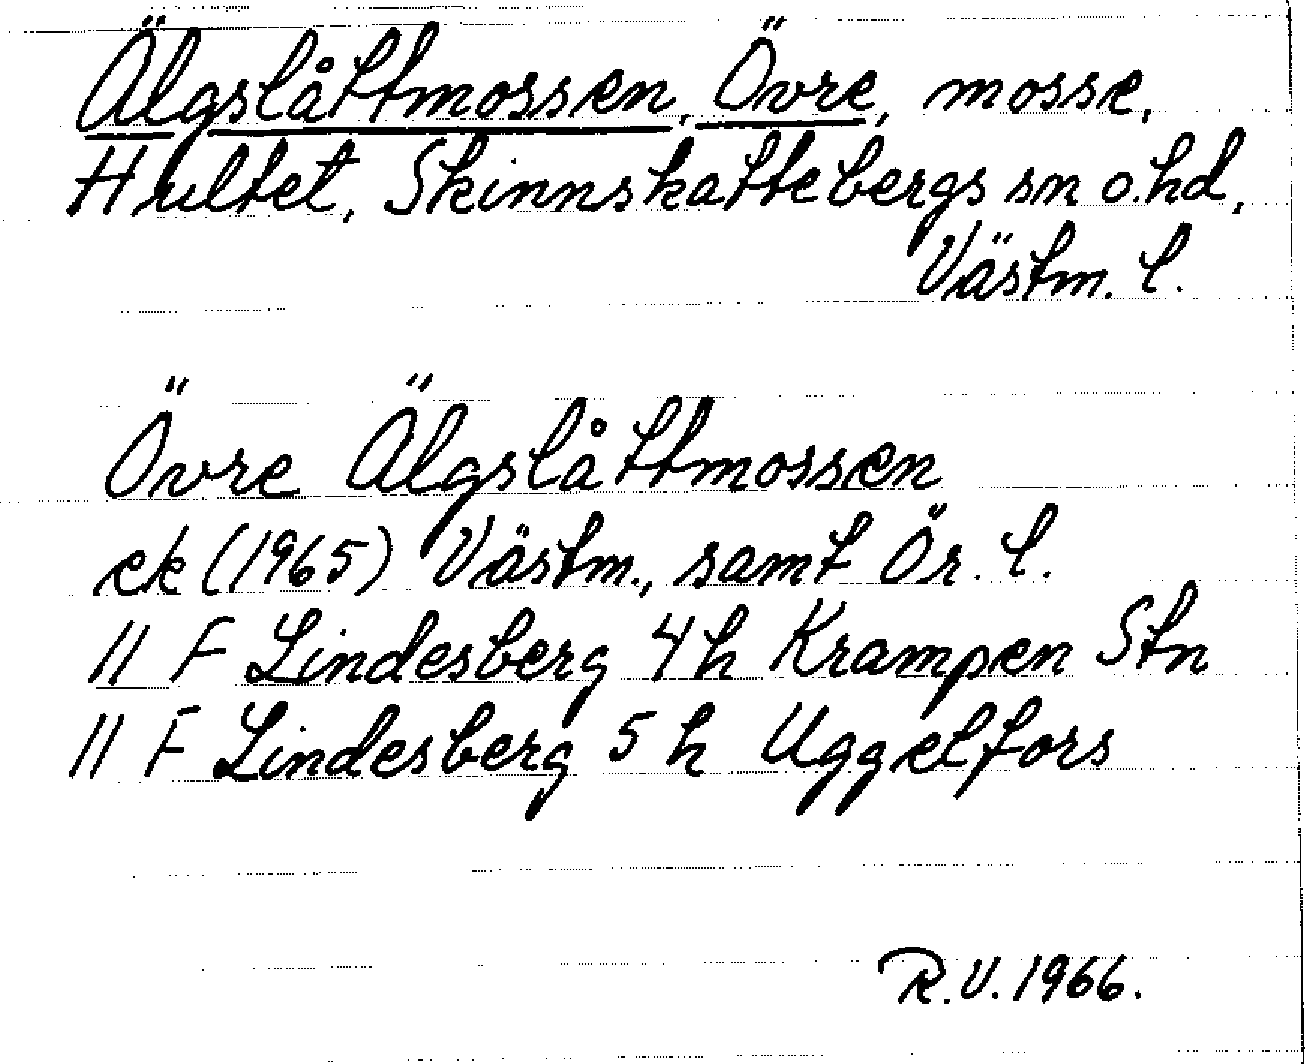 Älgslåttmossen, Övre, mosse,
Hultet, Skinnskattebergs sn o. hd,
Västm. l.
Övre Älgslåttmossen
ek (1965) Västm., samt Ör. l.
11 F Lindesberg 4 h Krampen Stn
11 F Lindesberg 5 h Uggelfors
R.V. 1966.